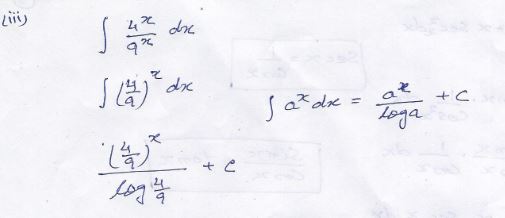 (iii)
∫ 4^x/9^x dx
∫ (4/9)^x dx
∫ a^x dx = a^x/log a + c
(4/9)^x/log 4/9 + c